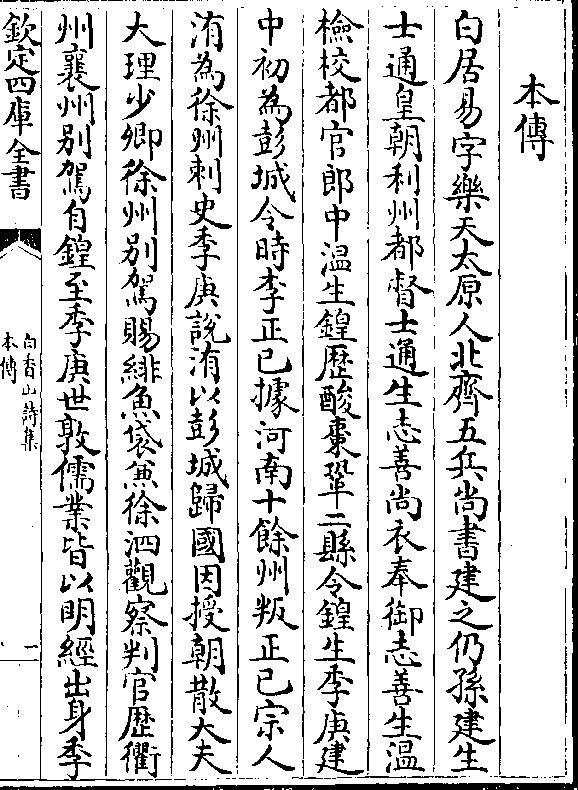 本傳
白居易字樂天太原人北齊五兵尚書建之仍孫建生
士通皇朝利州都督士通生志善尚衣奉御志善生温
檢校都官郎中温生鍠歴酸棗鞏二縣令鍠生季庚建
中初為彭城令時李正已據河南十餘州叛正已宗人
洧為徐州刺史季庚說洧以彭城歸國因授朝散大夫
大理少卿徐州别駕賜緋魚袋兼徐泗觀察判官歴衢
州襄州别駕自鍠至季庚世敦儒業皆以明經出身季
欽定四庫全書
白香山詩集
本傳
一